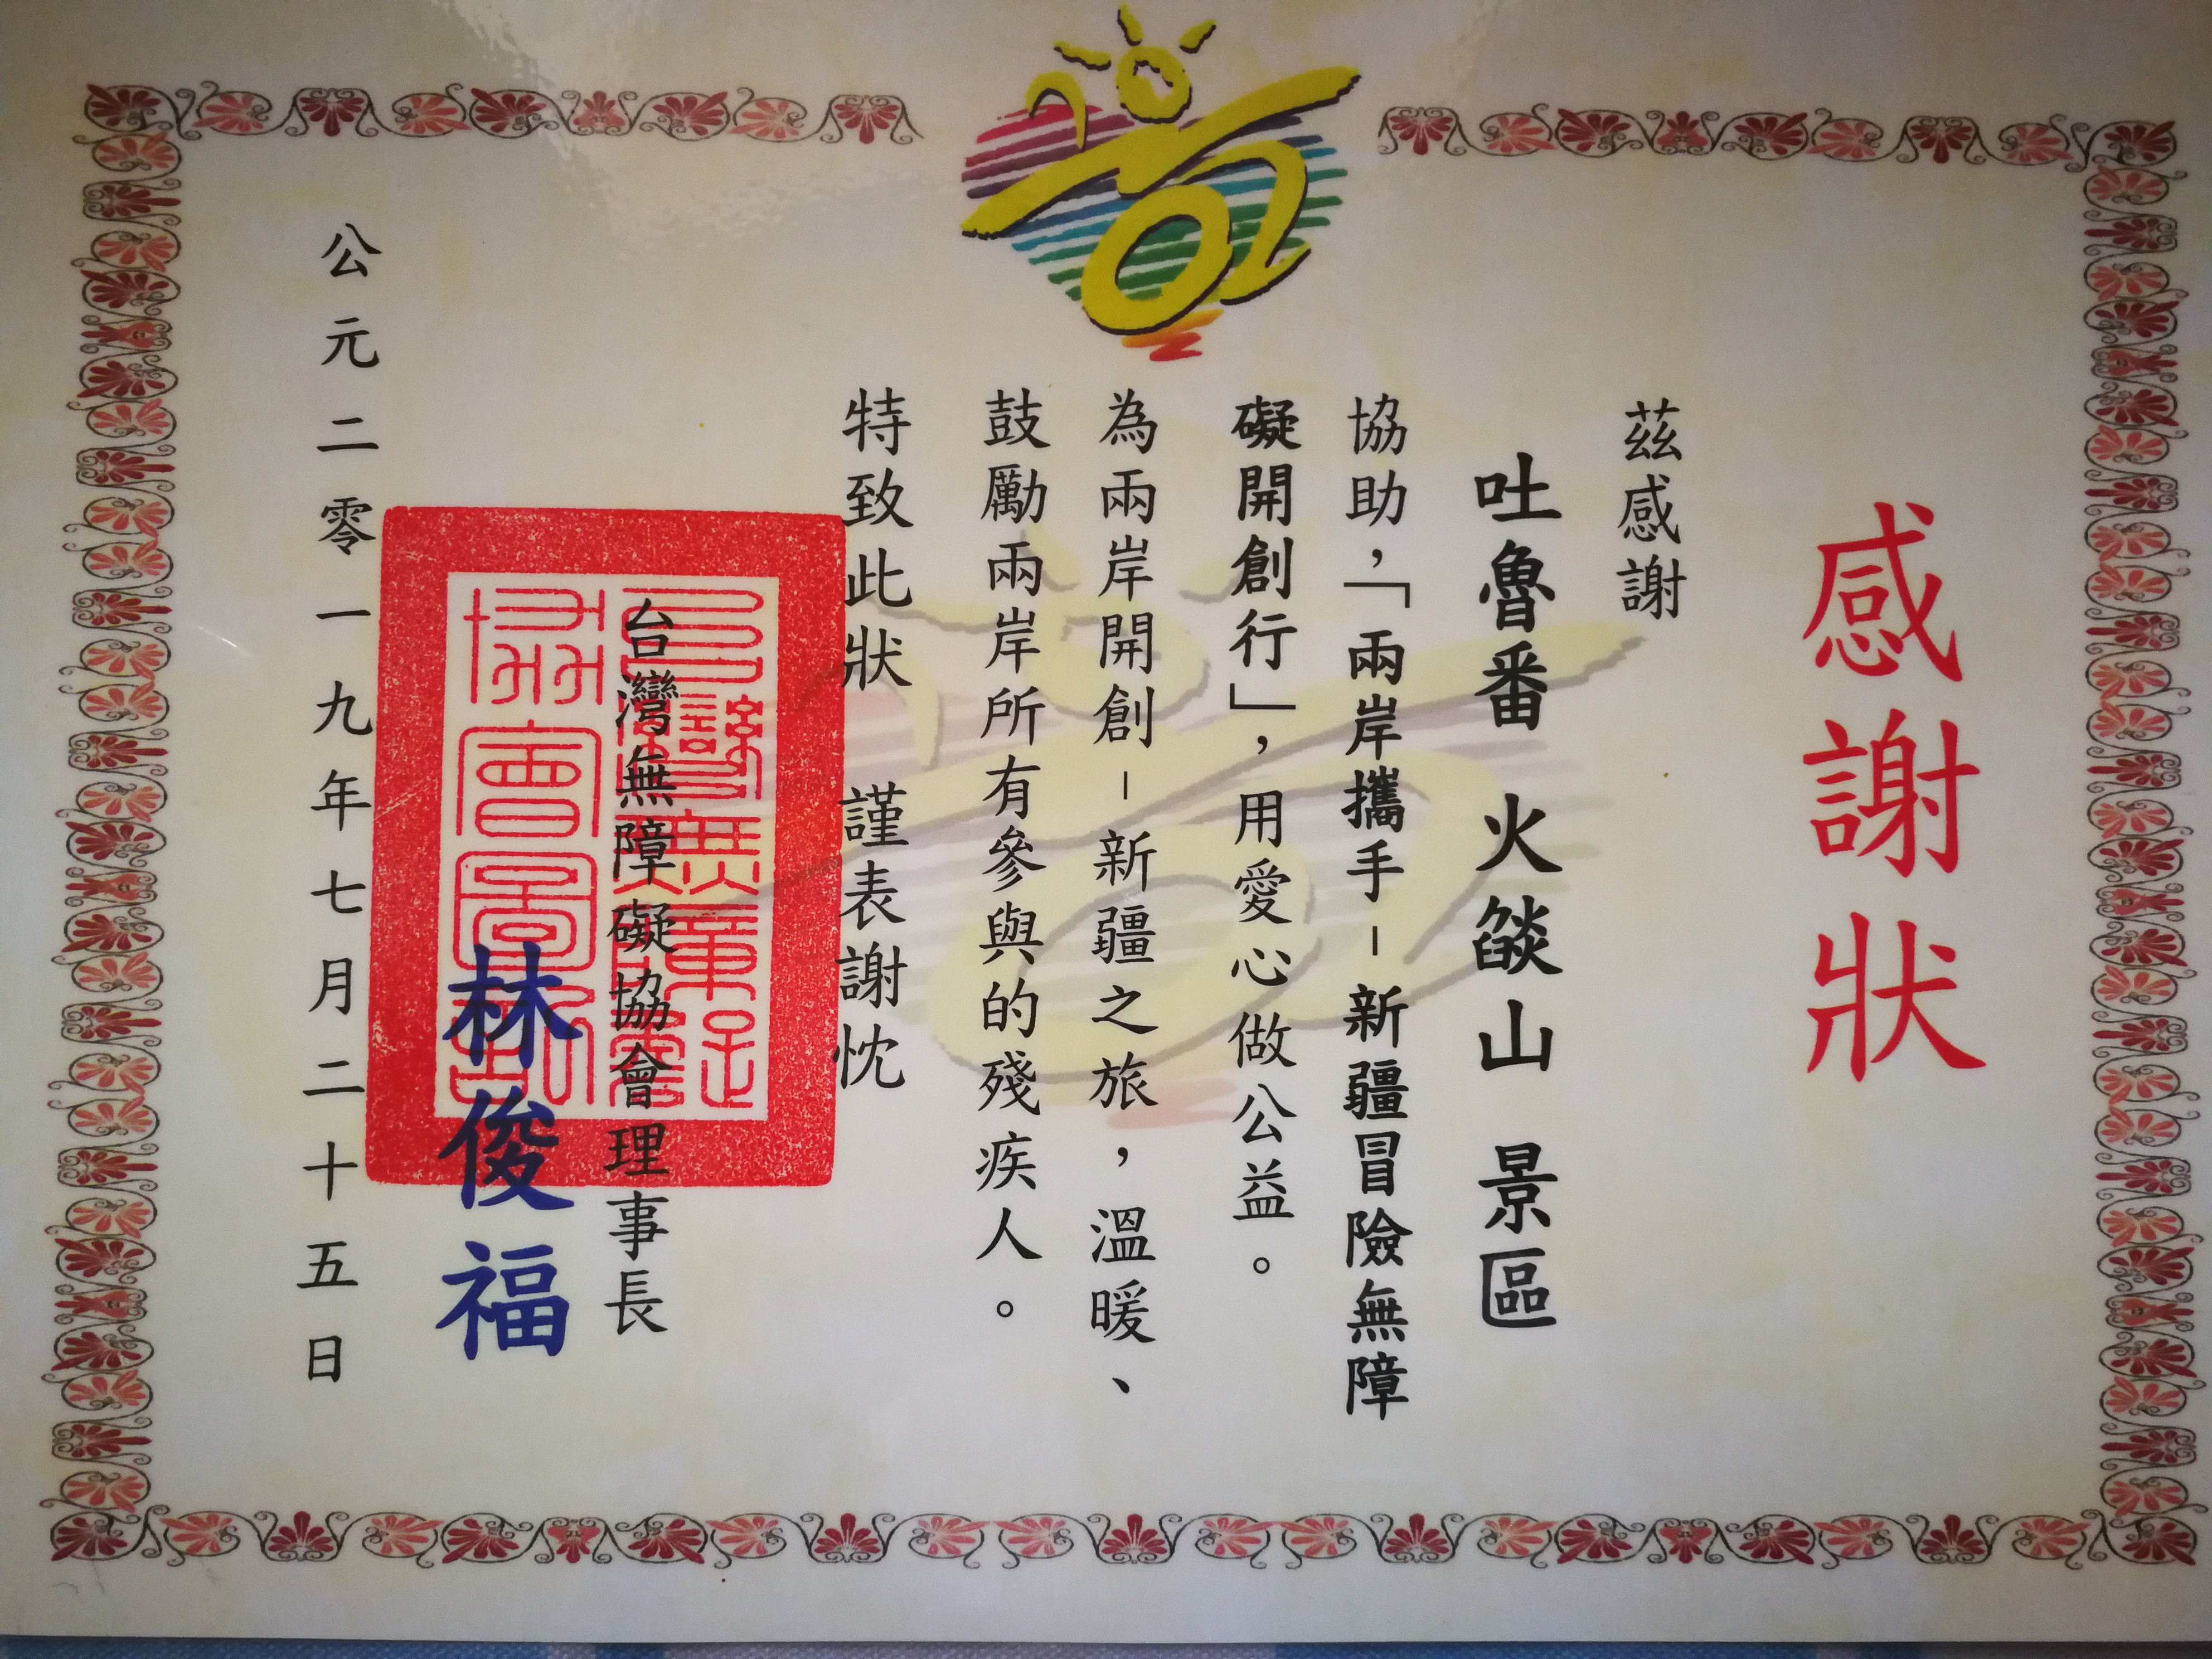 感謝狀
茲感謝
吐魯番 火燄山 景區
協助，「兩岸攜手–新疆冒險無障
礙開創行」，用愛心做公益。
為兩岸開創–新疆之旅，溫暖、
鼓勵兩岸所有參與的殘疾人。
特致此狀 謹表謝忱
台灣無障礙協會理事長
林俊福
公元二零一九年七月二十五日